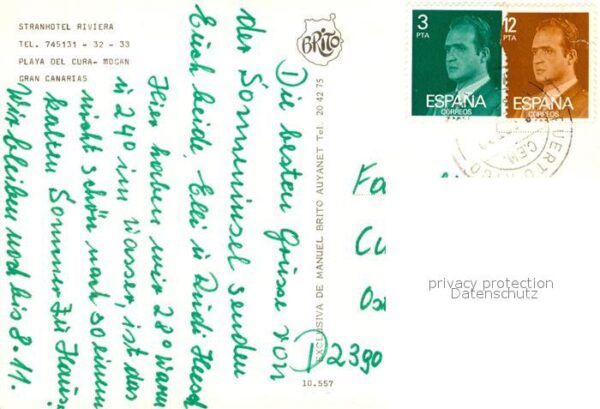 STRANHOTEL RIVIERA
TEL. 745131 - 32 - 33
PLAYA DEL CURA- MOGAN
GRAN CANARIAS
BRITO
Die besten Grüsse von
der Sonneninsel senden
Euch beide, Elli u. Rudi
Hier haben wir 28° warm
u 24° im Wasser, ist das
nicht schön nach so einem
kalten Sommer zu Haus.
Wir bleiben noch bis 8.11.
EXCLUSIVA DE MANUEL BRITO AUYANET Tel. 20 42 75
10.557
3
PTA
ESPAÑA
CORREOS
12
PTA
ESPAÑA
CORREOS
PUERTO RICO
Fa
Cu
D2390
privacy protection
Datenschutz